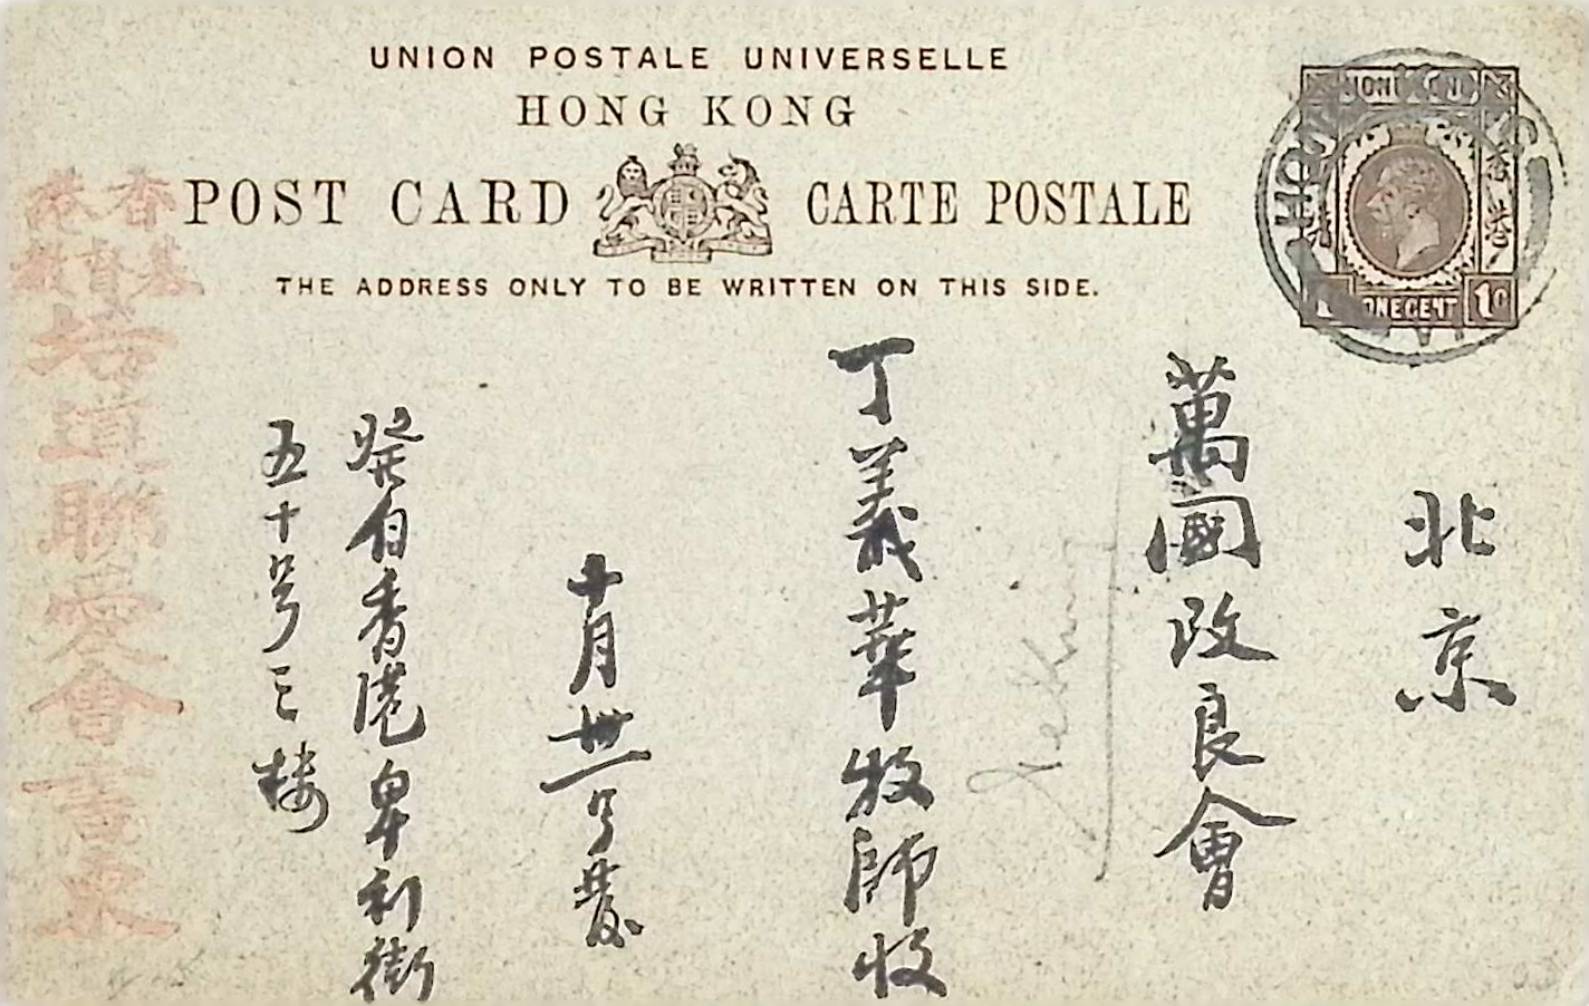 UNION POSTALE UNIVERSELLE
HONG KONG
POST CARD CARTE POSTALE
THE ADDRESS ONLY TO BE WRITTEN ON THIS SIDE.
HONG KONG
香港
ONE CENT
1c
北京
萬國改良會
Peking
丁義華牧師收
十月卅一号發
發自香港卑利街
五十号三楼
香港
基督教
培道聯愛會言柬